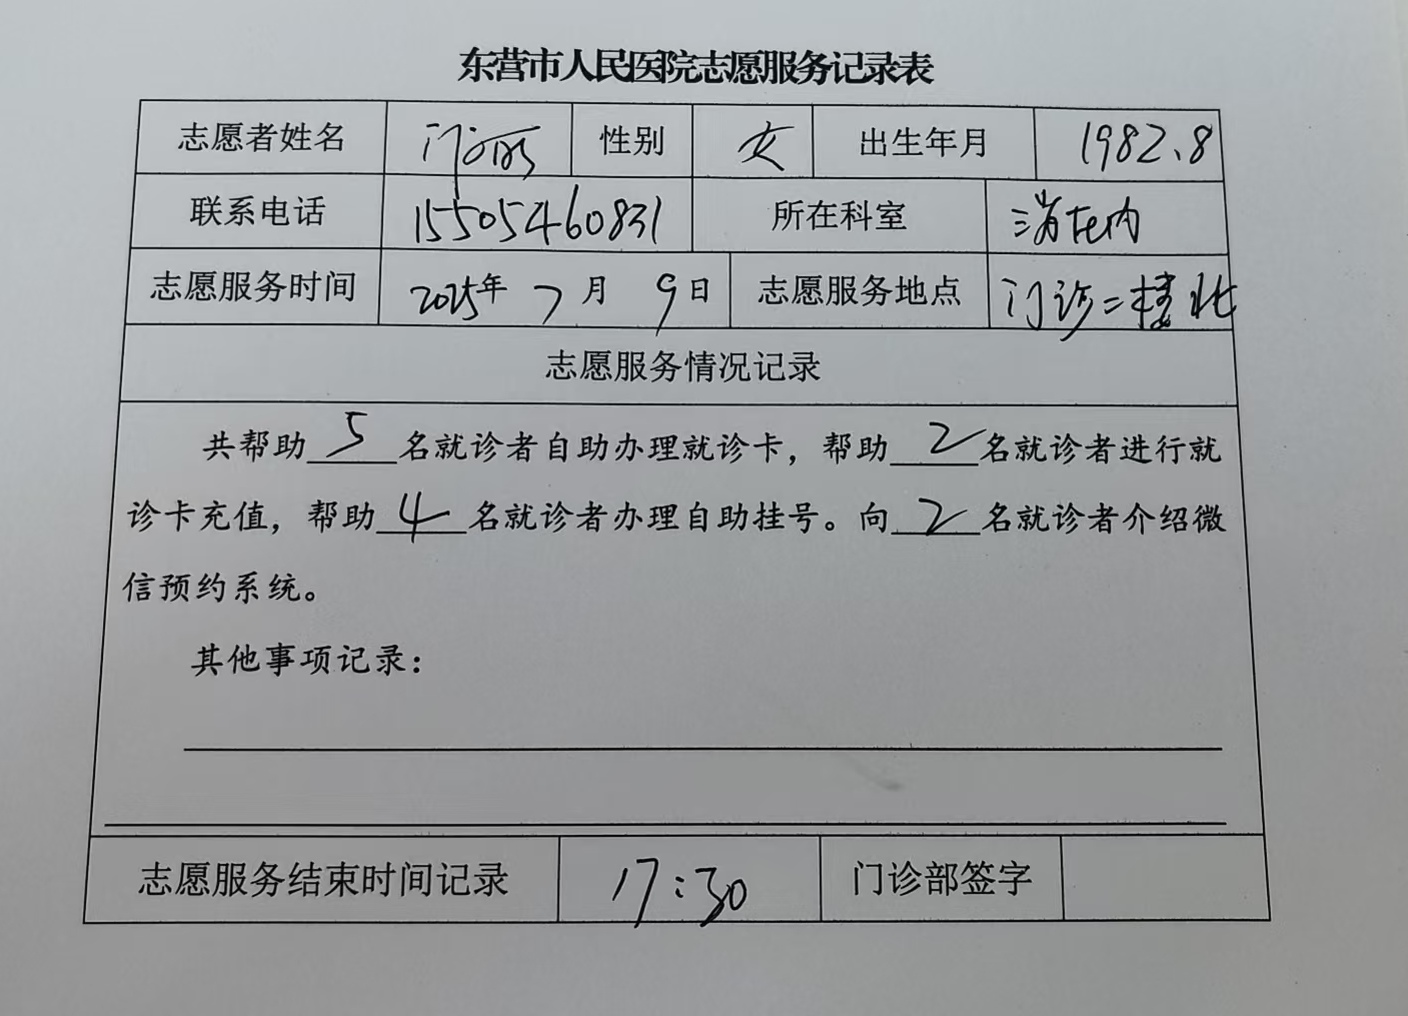 东营市人民医院志愿服务记录表
志愿者姓名 性别 女 出生年月 1982.8
联系电话 15505460831 所在科室 消化内
志愿服务时间 2025年 7 月 9日 志愿服务地点 门诊二楼北
志愿服务情况记录
共帮助5名就诊者自助办理就诊卡，帮助2名就诊者进行就
诊卡充值，帮助4名就诊者办理自助挂号。向2名就诊者介绍微
信预约系统。
其他事项记录：
志愿服务结束时间记录 17:30 门诊部签字